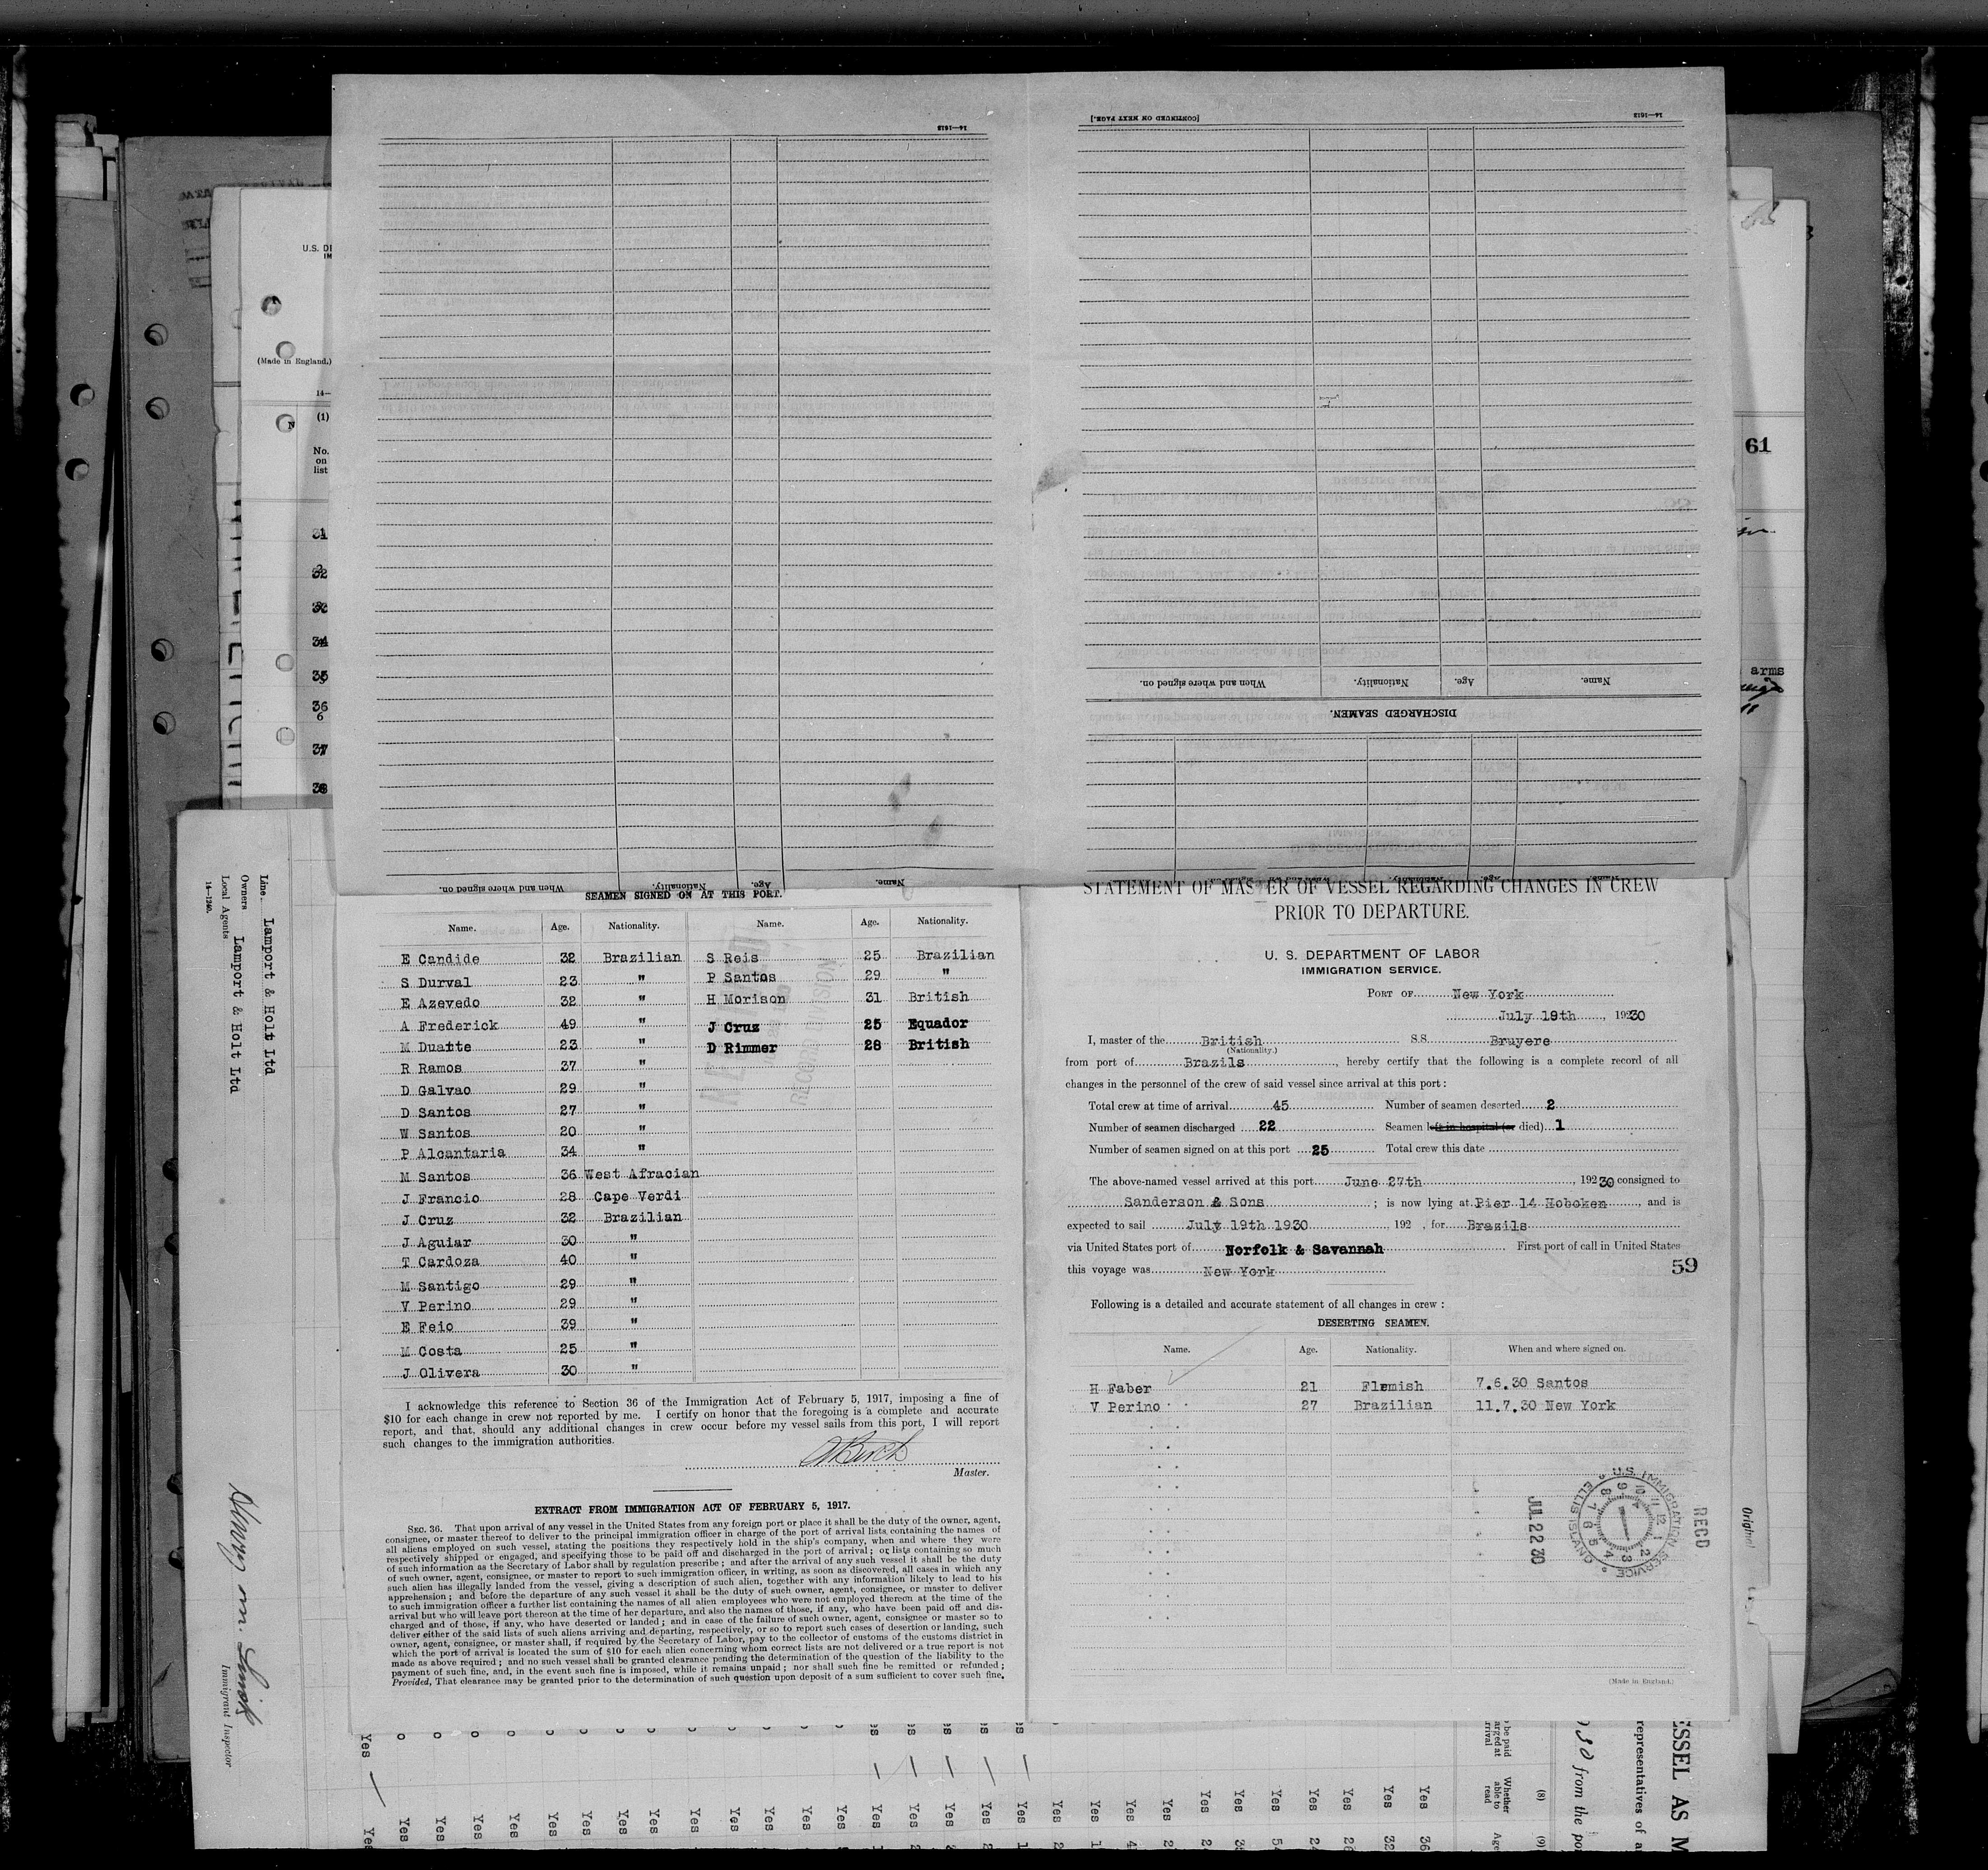 14—1613
[CONTINUED ON NEXT PAGE.]
14—1613
When and where signed on. Nationality. Age. Name.
DISCHARGED SEAMEN.
When and where signed on. Nationality. Age. Name.
U.S. DE
IM
(Made in England.)
14—
(1)
No.
on
list
31
32
34
35
36
6
37
38
61
arms
Line Lamport & Holt Ltd
Owners Lamport & Holt Ltd
Local Agents
14—1240.
Immigrant Inspector
SEAMEN SIGNED ON AT THIS PORT.
Name. Age. Nationality. Name. Age. Nationality.
E Candide 32 Brazilian S Reis 25 Brazilian
S Durval 23 " P Santos 29 "
E Azevedo 32 " H Morison 31 British
A Frederick 49 " J Cruz 25 Equador
M Duarte 23 " D Rimmer 28 British
R Ramos 37 "
D Galvao 29 "
D Santos 27 "
W Santos 20 "
P Alcantaria 34 "
M Santos 36 West Afracian
J Francio 28 Cape Verdi
J Cruz 32 Brazilian
J Aguiar 30 "
T Cardoza 40 "
M Santigo 29 "
V Perino 29 "
E Feio 39 "
M Costa 25 "
J Olivera 30 "
I acknowledge this reference to Section 36 of the Immigration Act of February 5, 1917, imposing a fine of
$10 for each change in crew not reported by me. I certify on honor that the foregoing is a complete and accurate
report, and that, should any additional changes in crew occur before my vessel sails from this port, I will report
such changes to the immigration authorities.
Master.
EXTRACT FROM IMMIGRATION ACT OF FEBRUARY 5, 1917.
SEC. 36. That upon arrival of any vessel in the United States from any foreign port or place it shall be the duty of the owner, agent,
consignee, or master thereof to deliver to the principal immigration officer in charge of the port of arrival lists containing the names of
all aliens employed on such vessel, stating the positions they respectively hold in the ship's company, when and where they were
respectively shipped or engaged, and specifying those to be paid off and discharged in the port of arrival; or lists containing so much
of such information as the Secretary of Labor shall by regulation prescribe; and after the arrival of any such vessel it shall be the duty
of such owner, agent, consignee, or master to report to such immigration officer, in writing, as soon as discovered, all cases in which any
such alien has illegally landed from the vessel, giving a description of such alien, together with any information likely to lead to his
apprehension; and before the departure of any such vessel it shall be the duty of such owner, agent, consignee, or master to deliver
to such immigration officer a further list containing the names of all alien employees who were not employed thereon at the time of the
arrival but who will leave port thereon at the time of her departure, and also the names of those, if any, who have been paid off and dis-
charged and of those, if any, who have deserted or landed; and in case of the failure of such owner, agent, consignee or master so to
deliver either of the said lists of such aliens arriving and departing, respectively, or so to report such cases of desertion or landing, such
owner, agent, consignee, or master shall, if required by the Secretary of Labor, pay to the collector of customs of the customs district in
which the port of arrival is located the sum of $10 for each alien concerning whom correct lists are not delivered or a true report is not
made as above required; and no such vessel shall be granted clearance pending the determination of the question of the liability to the
payment of such fine, and, in the event such fine is imposed, while it remains unpaid; nor shall such fine be remitted or refunded;
Provided, That clearance may be granted prior to the determination of such question upon deposit of a sum sufficient to cover such fine.
STATEMENT OF MASTER OF VESSEL REGARDING CHANGES IN CREW
PRIOR TO DEPARTURE.
U. S. DEPARTMENT OF LABOR
IMMIGRATION SERVICE.
PORT OF New York
July 19th, 19230
I, master of the British SS. Bruyere
(Nationality.)
from port of Brazils, hereby certify that the following is a complete record of all
changes in the personnel of the crew of said vessel since arrival at this port:
Total crew at time of arrival 45 Number of seamen deserted 2
Number of seamen discharged 22 Seamen left in hospital (or died) 1
Number of seamen signed on at this port 25 Total crew this date
The above-named vessel arrived at this port June 27th, 19230 consigned to
Sanderson & Sons; is now lying at Pier 14 Hoboken, and is
expected to sail July 19th 1930 192 , for Brazils
via United States port of Norfolk & Savannah First port of call in United States
this voyage was New York
59
Following is a detailed and accurate statement of all changes in crew:
DESERTING SEAMEN.
Name. Age. Nationality. When and where signed on.
H Faber 21 Flemish 7.6.30 Santos
V Perino 27 Brazilian 11.7.30 New York
U.S. IMMIGRATION SERVICE
ELLIS ISLAND
JUL 22 30
RECD
Original
(Made in England.)
ESSEL AS M
representatives of a
from the po
(8)
Whether
able to
read
(9)
Age
Yes